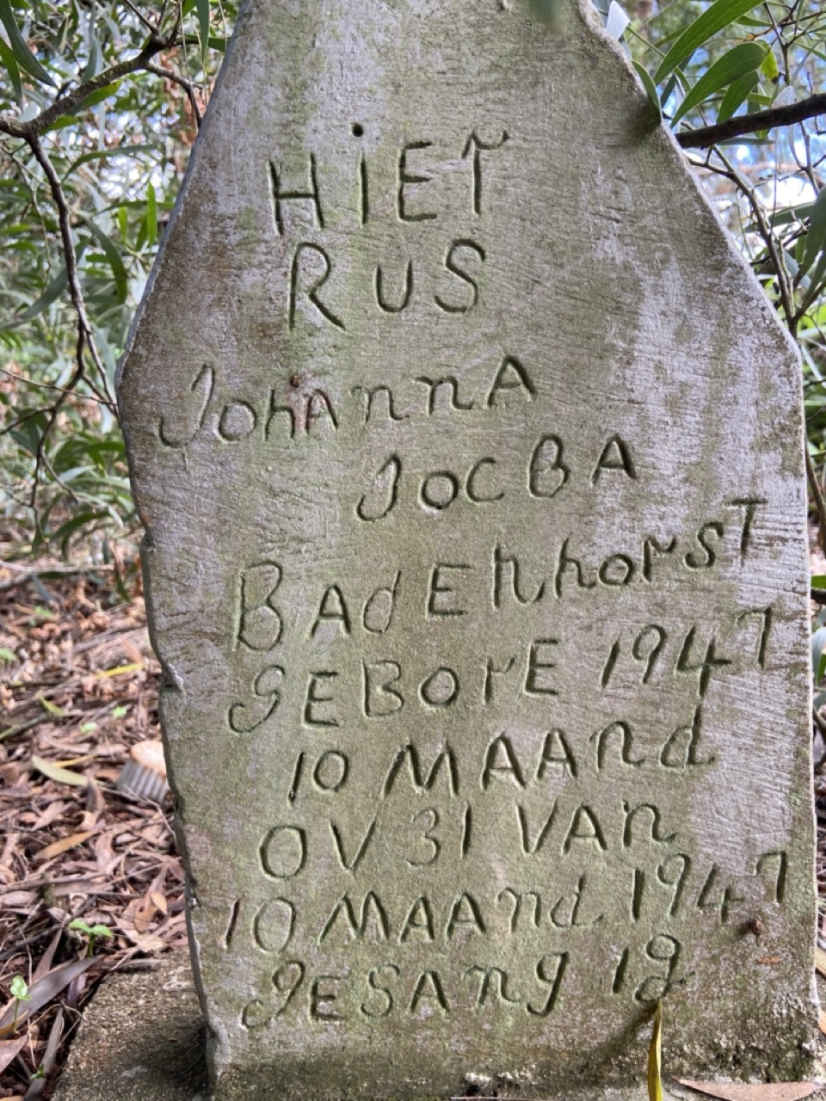 HiEr
RUS
JohAnnA
JOCBA
BAdEnhorsT
GEBOrE 1947
10 MAANd
OV 31 VAn
10 MAAnd 1947
GESAng 19